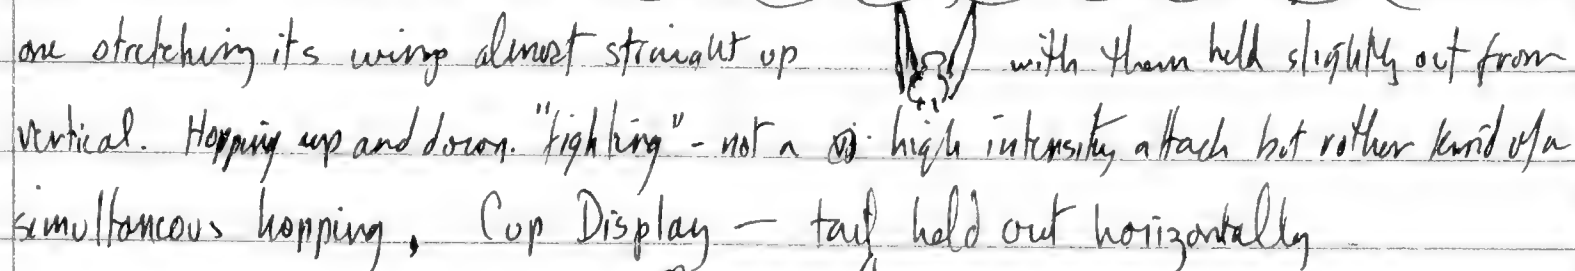 one stretching its wings almost straight up with them held slightly out from
vertical. Hopping up and down. "fighting" - not a high intensity attack but rather kind of a
simultaneous hopping. Cup Display — tail held out horizontally